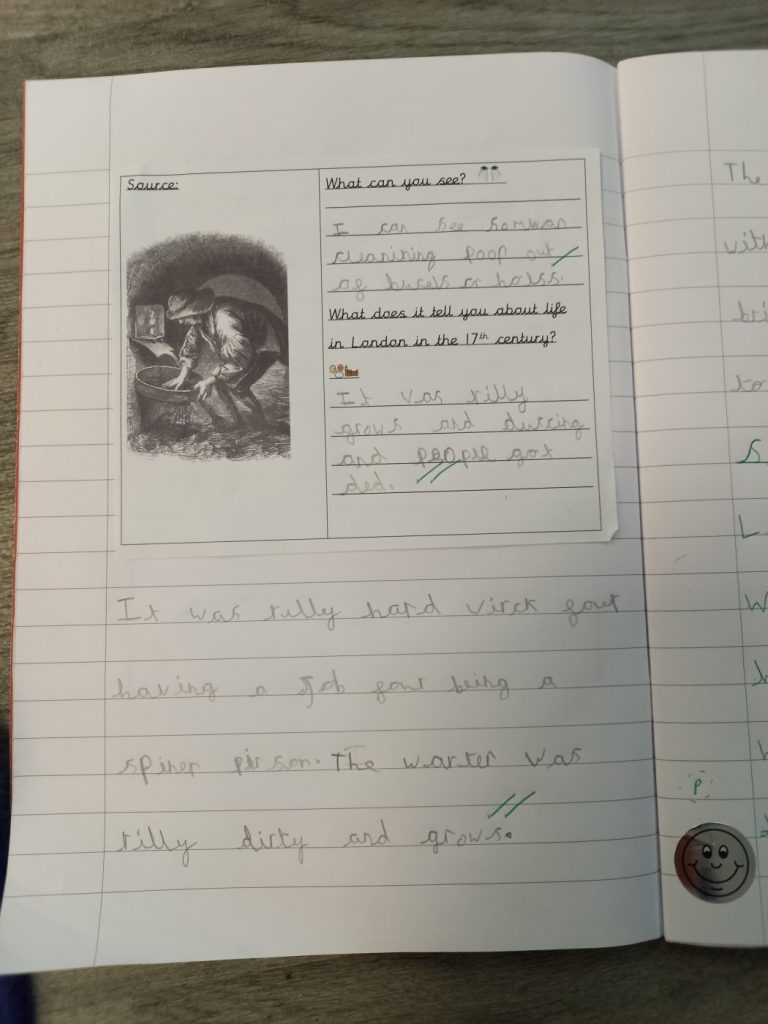 Source:
What can you see?
I can see somwan
cleanihing poop out
of bucets or holss.
What does it tell you about life
in London in the 17th century?
It was rilly
grows and duscing
and peopse got
ded.
It was rully hard virck four
having a Job four being a
spiner pirson. The warter was
rilly dirty and grows.
The
with
bri
to
S
L
W
h
P